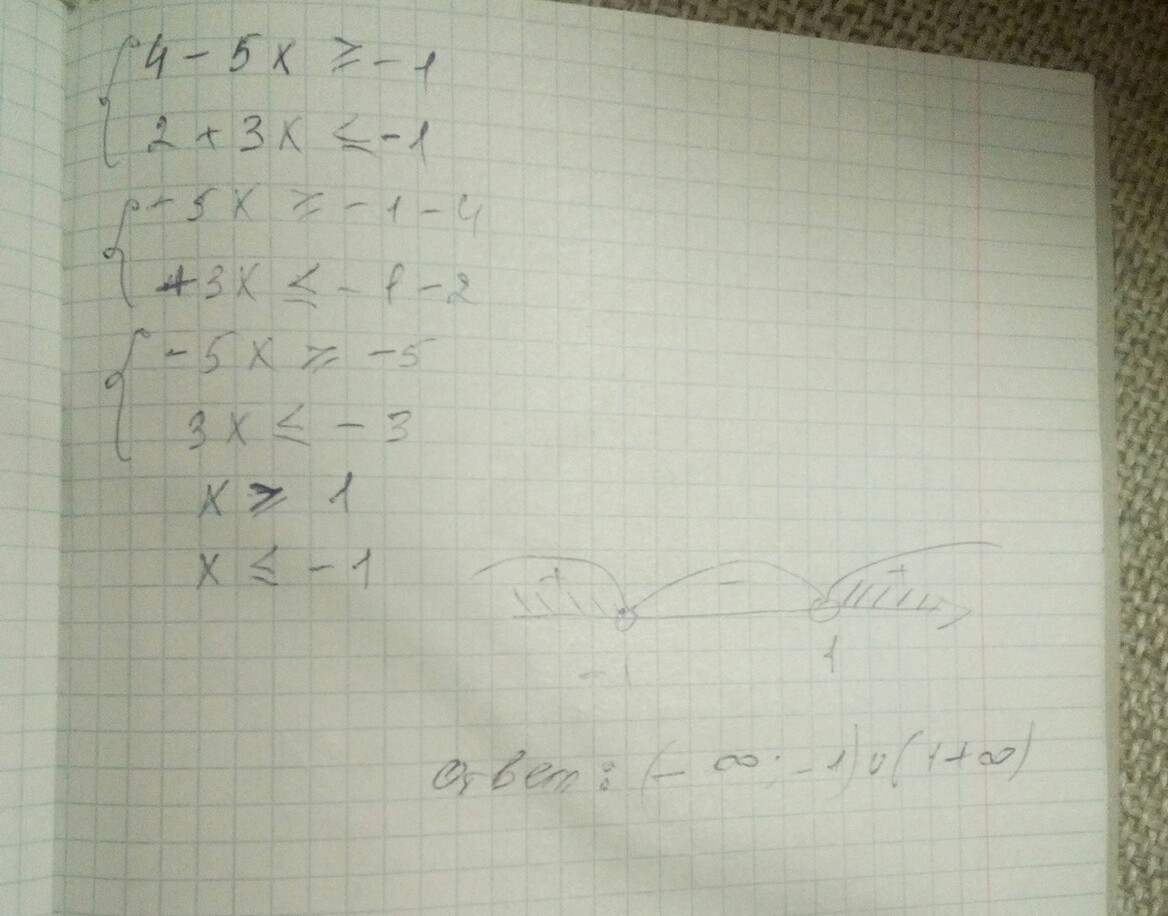 4 - 5x ≥ -1
2 + 3x ≤ -1
-5x ≥ -1 - 4
+3x ≤ -1 - 2
-5x ≥ -5
3x ≤ -3
x ≥ 1
x ≤ -1
+ - +
-1 1
Ответ: (-∞; -1) ∪ (1 +∞)